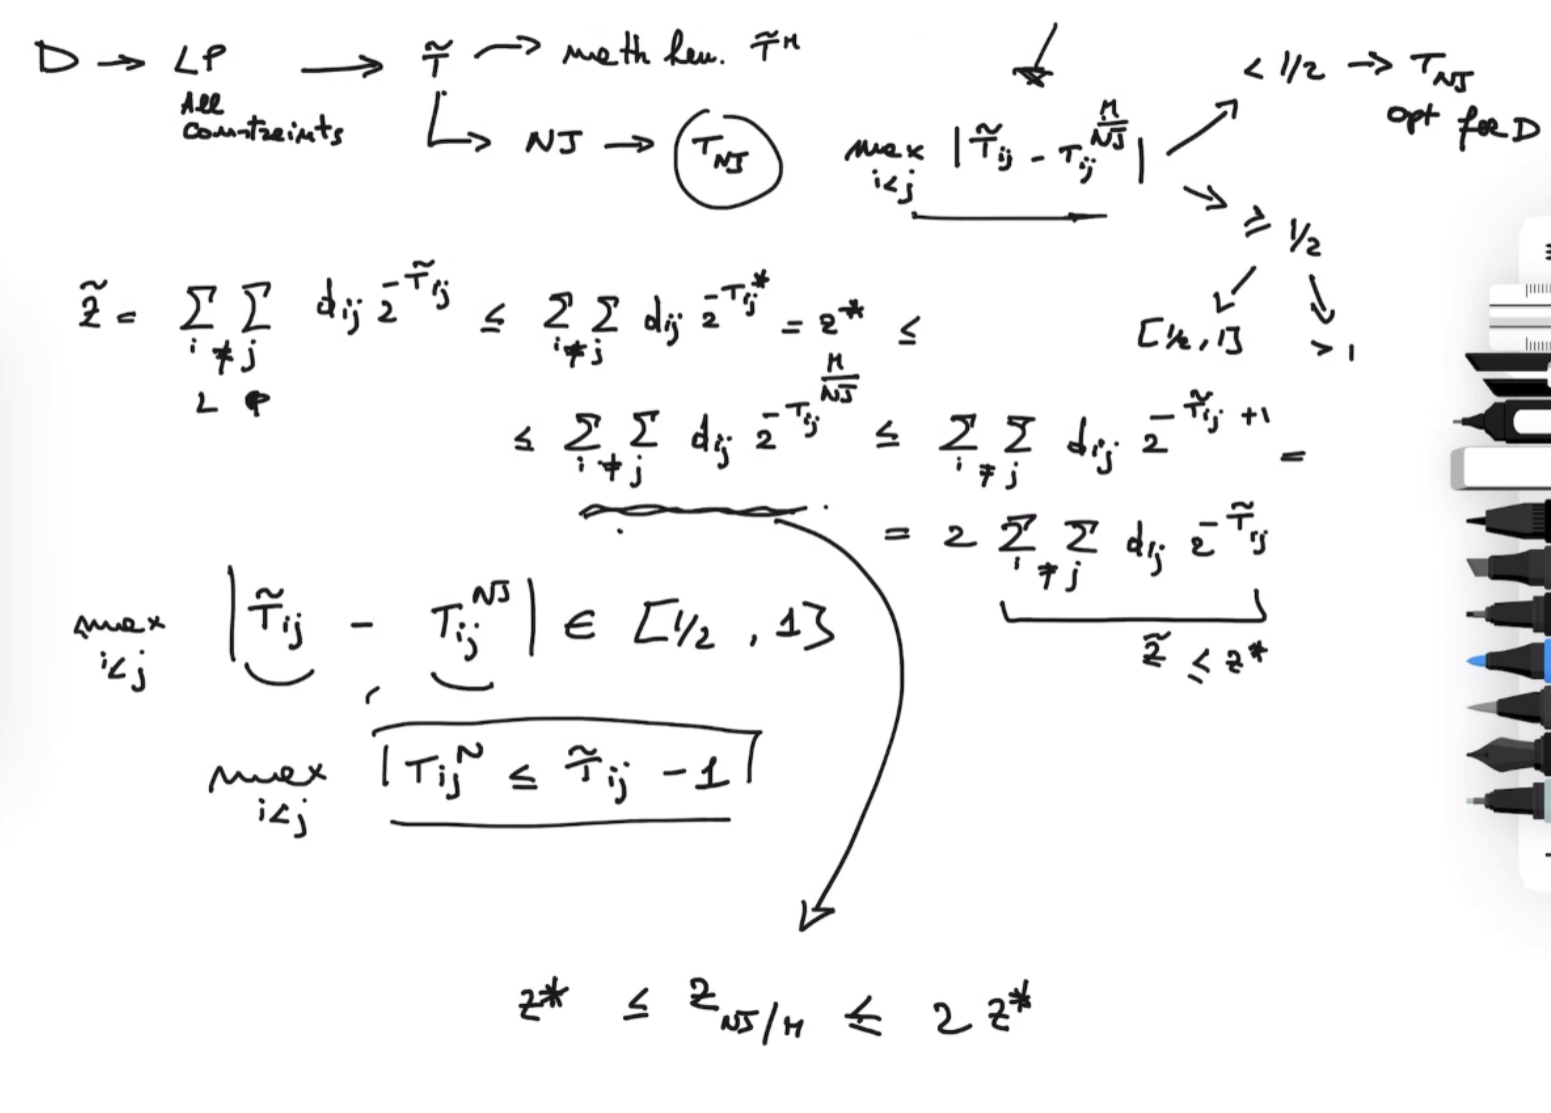 D → LP → T̃ → math heu. T̃ᴹ
All constraints
↳ NJ → T_NJ
max i<j |T̃ij - Tij^(M/NJ)|
< 1/2 → T_NJ
opt for D
≥ 1/2
[1/2, 1]
> 1
z̃ = Σ Σ i≠j dij 2^(-T̃ij) ≤ Σ Σ i≠j dij 2^(-Tij*) = z* ≤
LP
≤ Σ Σ i≠j dij 2^(-Tij^(M/NJ)) ≤ Σ Σ i≠j dij 2^(-T̃ij +1) =
= 2 Σ Σ i≠j dij 2^(-T̃ij)
z̃ ≤ z*
max i<j |T̃ij - Tij^NJ| ∈ [1/2, 1]
max i<j |Tij^N ≤ T̃ij - 1|
z* ≤ z_NJ/M ≤ 2 z*